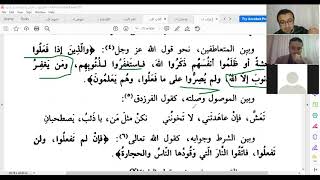 Try Acrobat Pro
وبين المتعاطفين، نحو قول الله عز وجل(٤): ﴿والذين إذا فعلوا
أو ظلموا أنفسهم ذكروا الله، فاستغفروا لذنوبهم، ومن يغفر
إلا الله ولم يصروا على ما فعلوا، وهم يعلمون﴾.
وبين الموصول وصلته، كقول الفرزدق(٥):
تعش، فإن عاهدتني، لا تخونني نكن مثل من، يا ذئب، يصطحبان
وبين الشرط وجوابه، كقول الله تعالى(٦): ﴿فإن لم تفعلوا، ولن
تفعلوا، فاتقوا النار التي وقودها الناس والحجارة﴾.